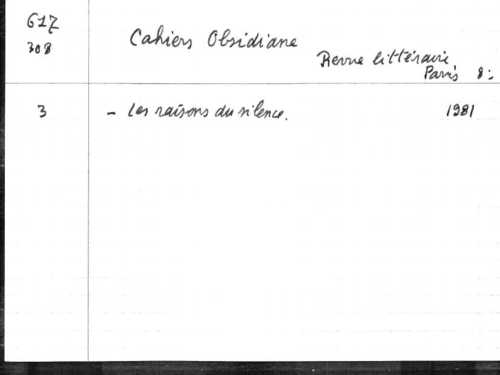 617
308
Cahiers Obsidiane
Revue littéraire
Paris 8:
3 - Les raisons du silence. 1981